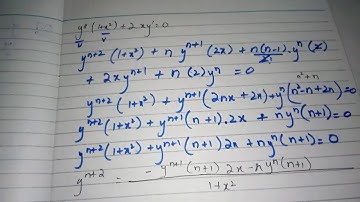 y² (1+x²) + 2xy' = 0
U V
yⁿ⁺² (1+x²) + n yⁿ⁺¹ (2x) + n(n-1)/2! . yⁿ (2)
+ 2xyⁿ⁺¹ + n (2) yⁿ = 0
n² + n
yⁿ⁺² (1+x²) + yⁿ⁺¹ (2nx + 2x) + yⁿ (n² - n + 2n) = 0
yⁿ⁺² (1+x²) + yⁿ⁺¹ (n+1) . 2x + n yⁿ (n+1) = 0
yⁿ⁺² (1+x²) + yⁿ⁺¹ (n+1) 2x + n yⁿ (n+1) = 0
yⁿ⁺² = - yⁿ⁺¹ (n+1) 2x - n yⁿ (n+1)
1+x²